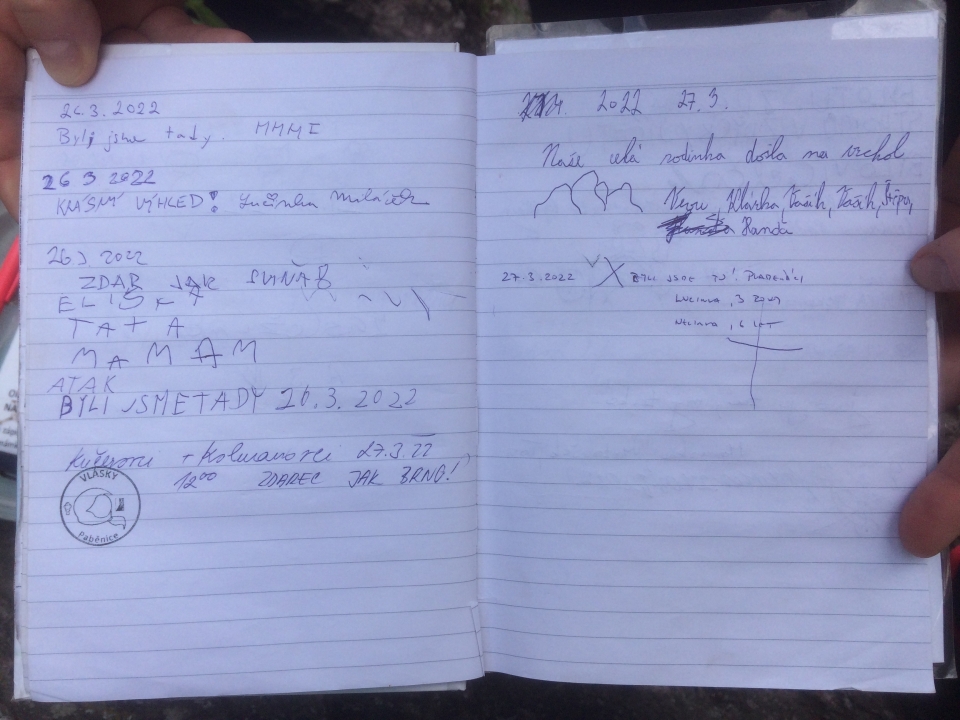 26.3.2022
Byli jsme tady. MMMI
26 3 2022
KRÁSNÝ VÝHLED! Lucinka Miláček
26 3 2022
ZDAR JAK SVIŇA
ELIŠKA
TATA
MAMAM
ATAK
BYLI JSMETADY 26.3.2022
Kučerovi + Kolmanovci 27.3.22
12⁰⁰ ZDAREC JAK BRNO!
VLÁSKY
Paběnice
2022 27.3.
Naše celá rodinka došla na vrchol
Klárka, Vašík, Vašík,
Handa
27.3.2022 BYLI JSME TU!
, 3 ROKY
, 6 LET